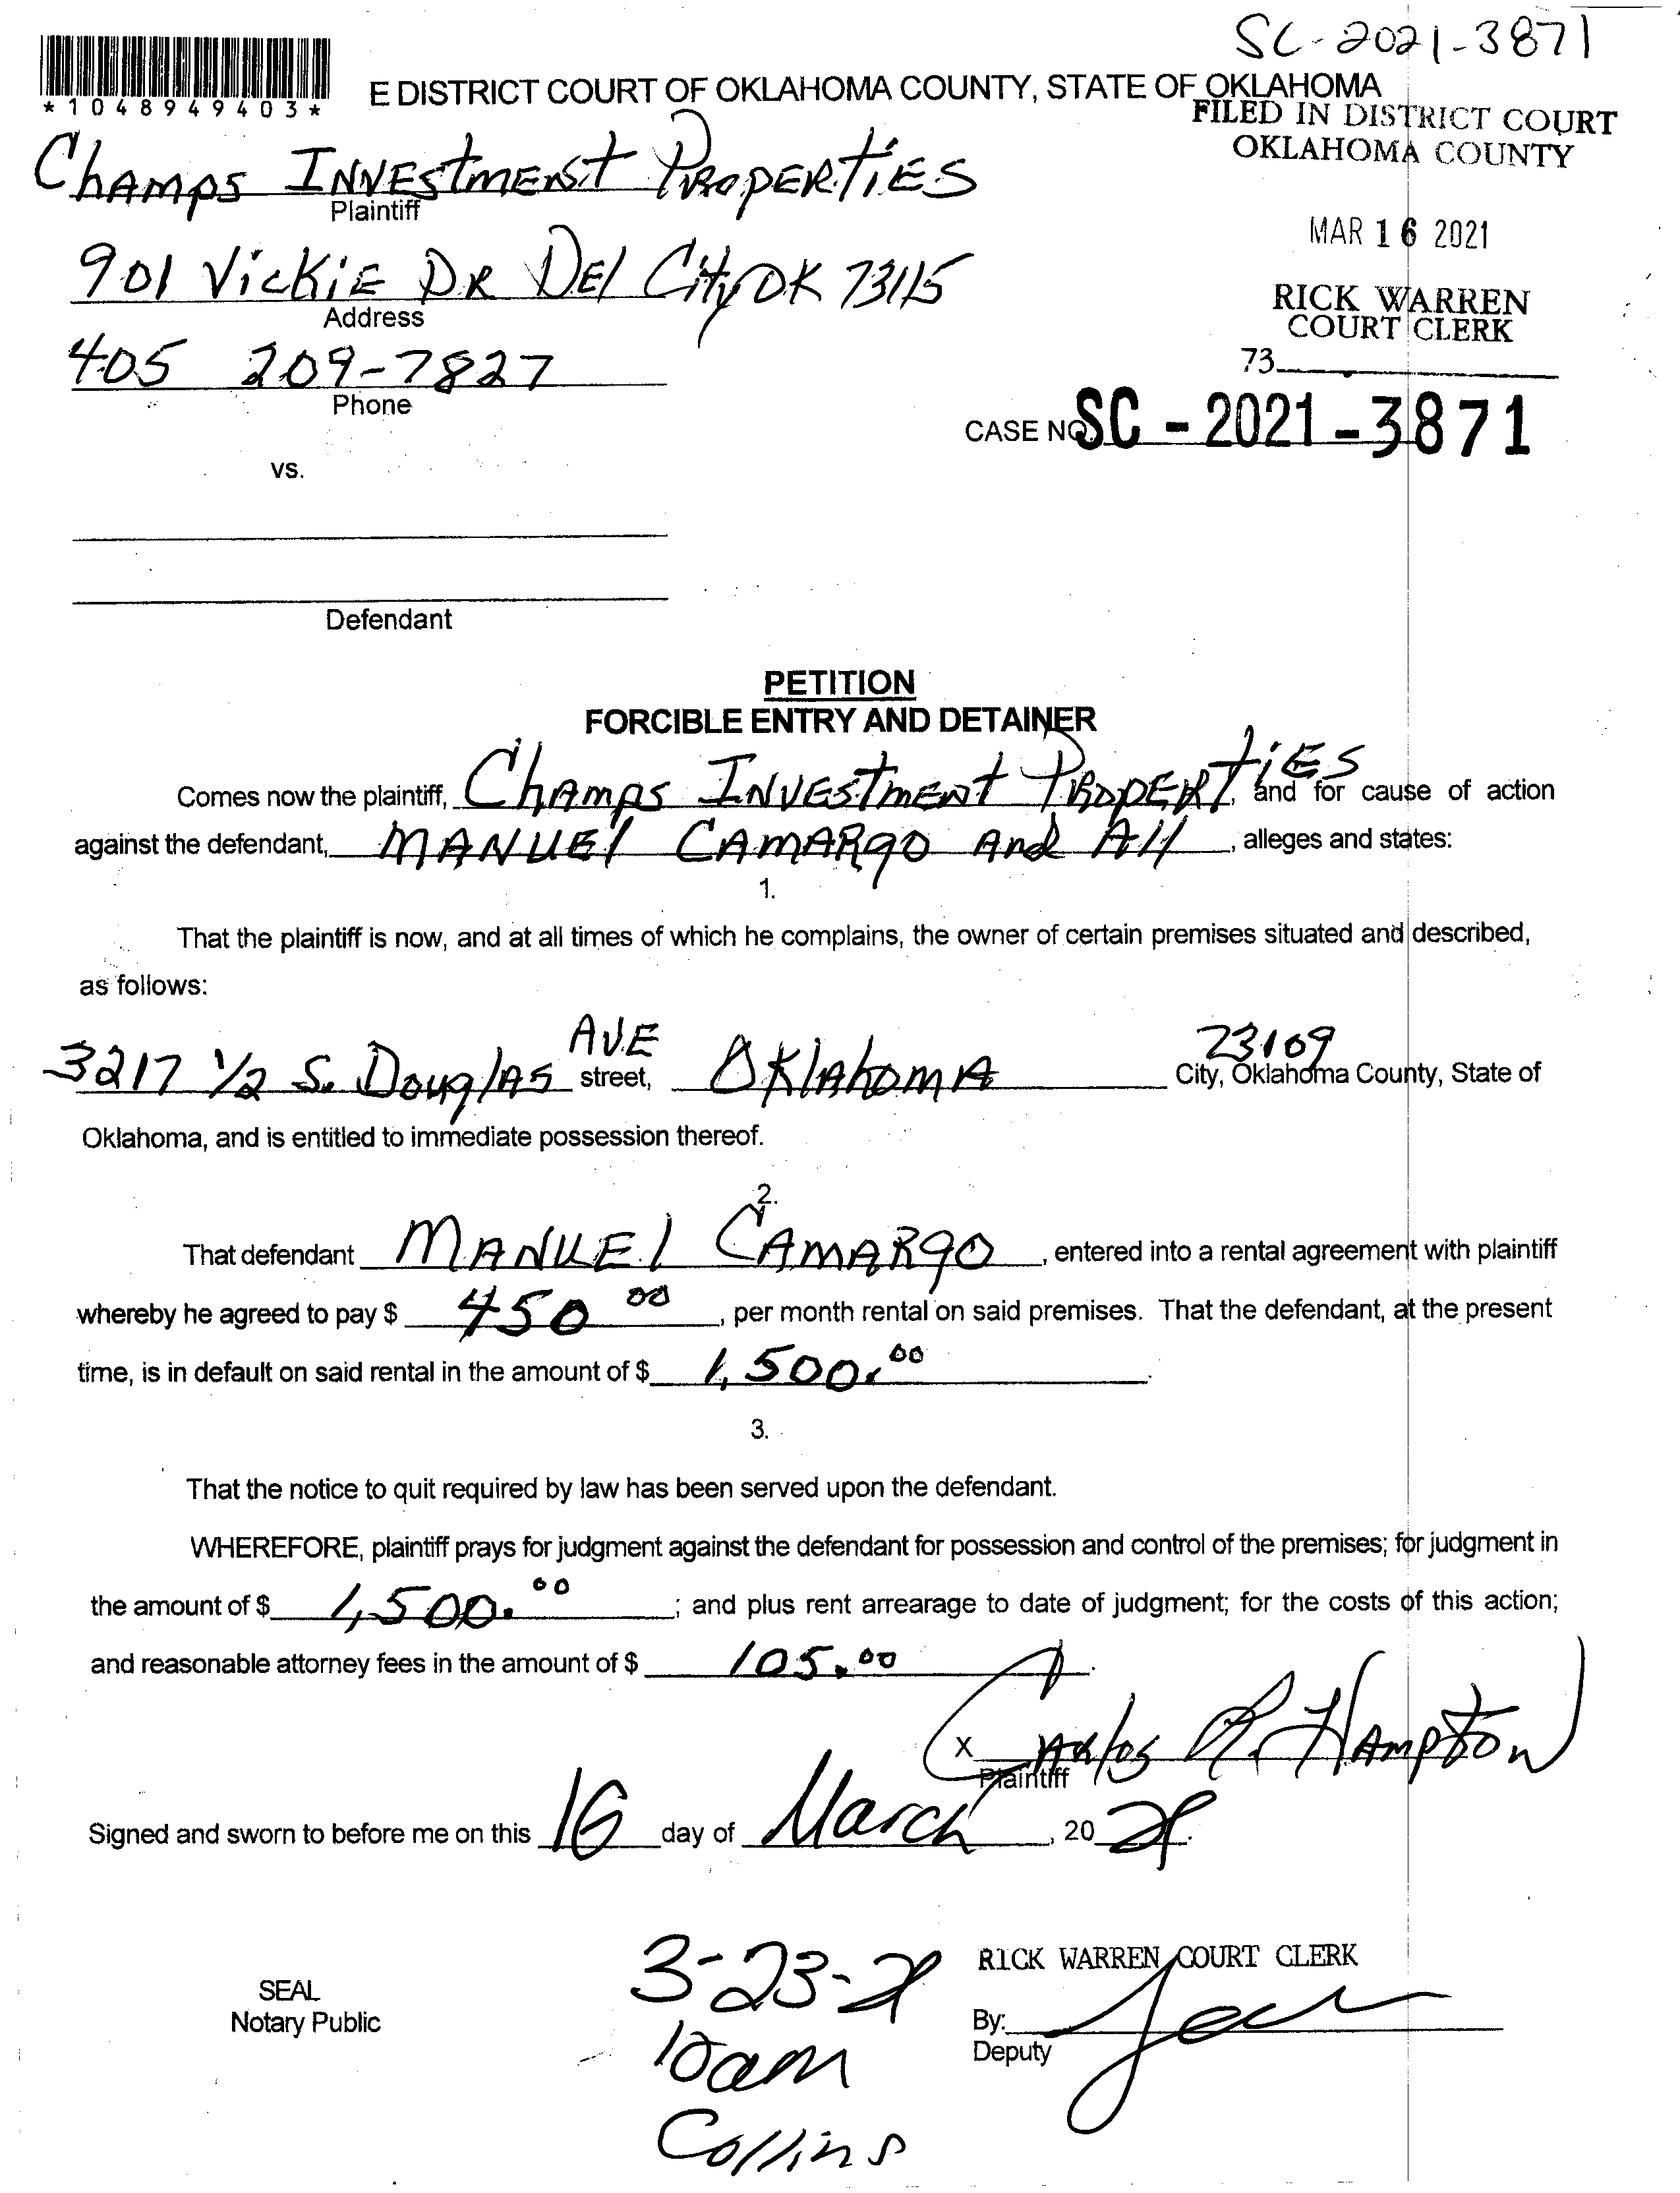 SC-2021-3871
*1048949403*
E DISTRICT COURT OF OKLAHOMA COUNTY, STATE OF OKLAHOMA
FILED IN DISTRICT COURT
OKLAHOMA COUNTY
Champs Investment Properties
Plaintiff
MAR 16 2021
901 Vickie DR Del City OK 73115
Address
RICK WARREN
COURT CLERK
405 209-7827
Phone
73
CASE NO. SC - 2021 - 3871
vs.
Defendant
PETITION
FORCIBLE ENTRY AND DETAINER
Comes now the plaintiff, Champs Investment Properties, and for cause of action
against the defendant, Manuel Camargo And All, alleges and states:
1.
That the plaintiff is now, and at all times of which he complains, the owner of certain premises situated and described,
as follows:
3217 1/2 S. Douglas AVE street, Oklahoma 73109 City, Oklahoma County, State of
Oklahoma, and is entitled to immediate possession thereof.
2.
That defendant Manuel Camargo, entered into a rental agreement with plaintiff
whereby he agreed to pay $ 450 00, per month rental on said premises. That the defendant, at the present
time, is in default on said rental in the amount of $ 1,500.00.
3.
That the notice to quit required by law has been served upon the defendant.
WHEREFORE, plaintiff prays for judgment against the defendant for possession and control of the premises; for judgment in
the amount of $ 1,500.00; and plus rent arrearage to date of judgment; for the costs of this action;
and reasonable attorney fees in the amount of $ 105.00.
x Carlos R. Hampton
Plaintiff
Signed and sworn to before me on this 16 day of March, 20 21.
3-23-21
RICK WARREN COURT CLERK
SEAL
Notary Public
By:
Deputy
10am
Collins